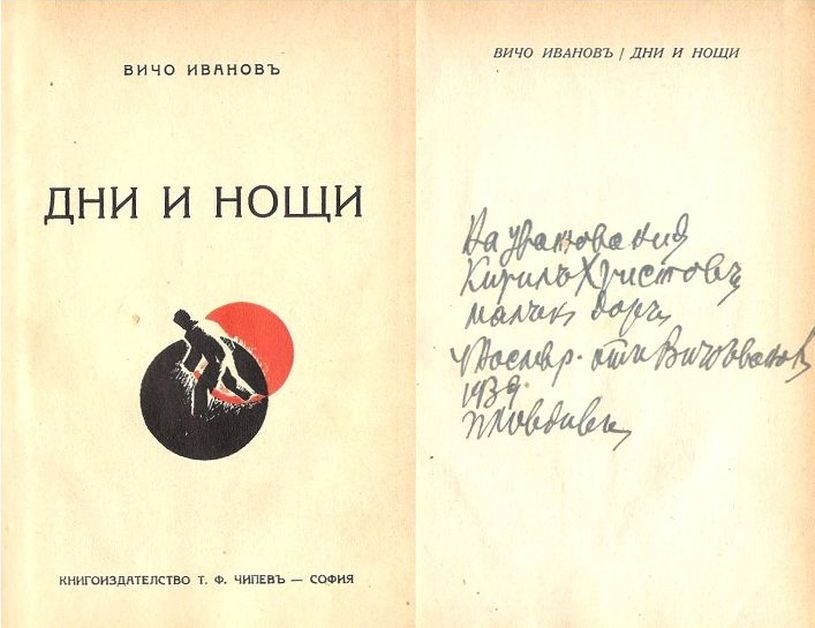 ВИЧО ИВАНОВЪ
ДНИ И НОЩИ
КНИГОИЗДАТЕЛСТВО Т. Ф. ЧИПЕВЪ — СОФИЯ
ВИЧО ИВАНОВЪ / ДНИ И НОЩИ
На
Кирилъ Христовъ
малъкъ даръ
отъ Вичо Ивановъ
193
Пловдивъ